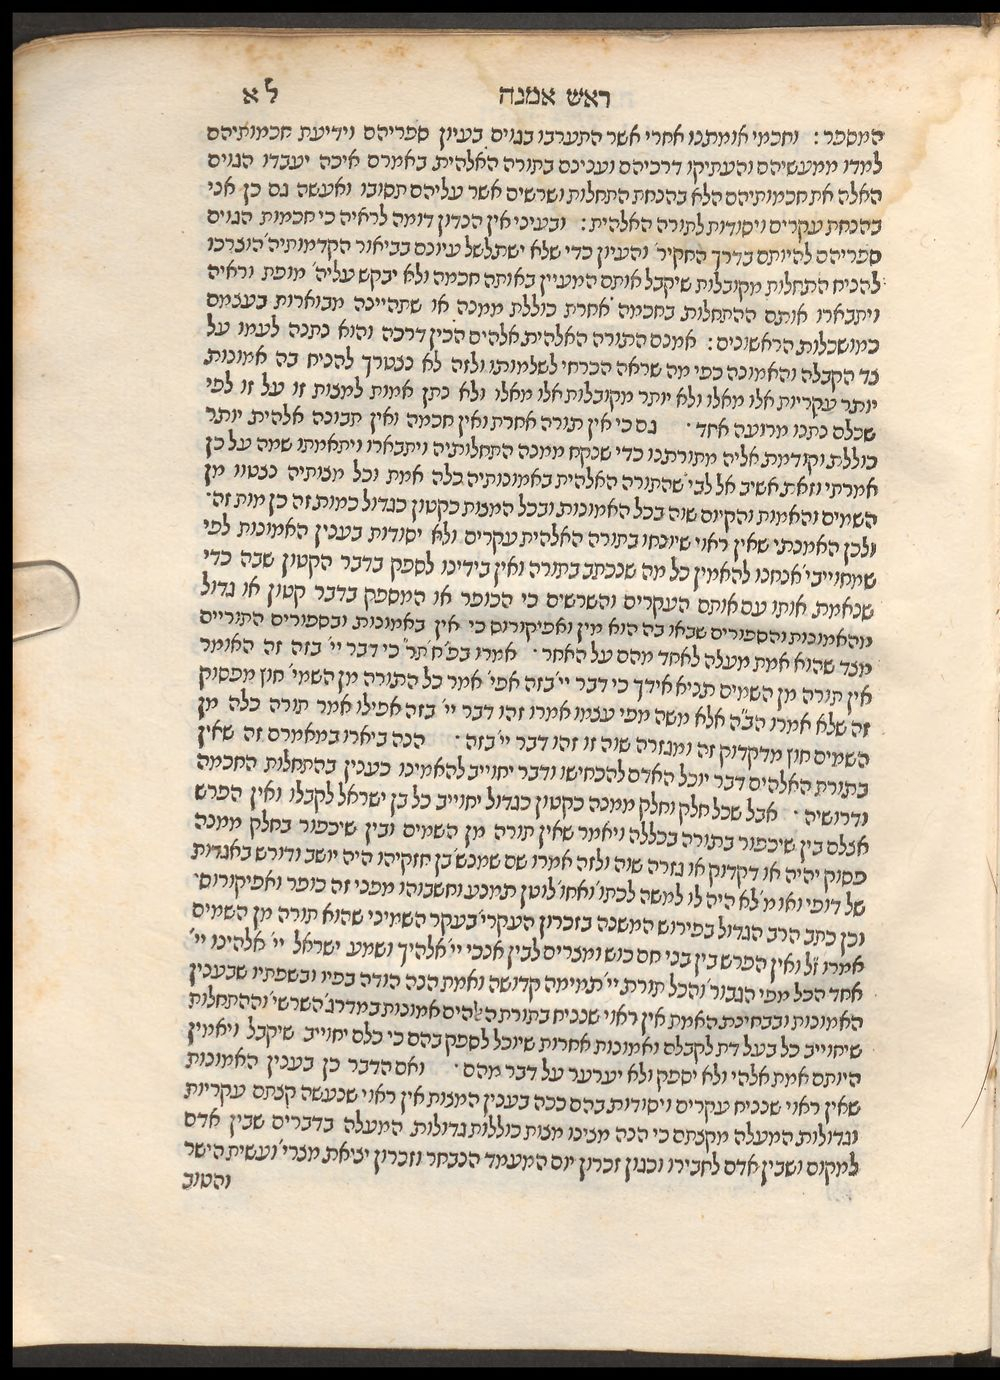 ראש אמנה
לא
המספר : וחכמי אומתנו אחרי אשר התערבו בגוים בעיון ספריהם וידיעת חכמותיהם
למדו ממעשיהם והעתיקו דרכיהם וענינם בתורה האלהית באמרם איכה יעבדו הגוים
האלה את חכמותיהם הלא בהנחת התחלות ושרשים אשר עליהם תסובו ואעשה גם כן אני
בהנחת עקרים ויסודות לתורה האלהית : ובעיני אין הנדון דומה לראיה כי חכמות הגוים
ספריהם להיותם בדרך החקיר׳ והעיון כדי שלא ישתלשל עיונם בביאור הקדמותיה׳ הוצרכו
להניח התחלות מקובלות שיקבל אותם המעיין באותה חכמה ולא יבקש עליה׳ מופת וראיה
ויתבארו אותם ההתחלות בחכמה אחרת כוללת ממנה או שתהיינה מבוארות בעצמם
כמושכלות הראשונים : אמנם התורה האלהית אלהים הכין דרכה והוא נתנה לעמו על
צד הקבלה והאמונה כפי מה שראה הכרחי לשלמותו ולזה לא נצטרך להניח בה אמונות
יותר עקריות אלו מאלו ולא יותר מקובלות אלו מאלו ולא נתן אמות למצות זו על זו לפי
שכלם נתנו מרועה אחד · גם כי אין תורה אחרת ואין חכמה ואין תבונה אלהית יותר
כוללת וקודמת אליה מתורתנו כדי שנקח ממנה התחלותיה ויתבארו ויתאמתו שמה על כן
אמרתי וזאת אשיב אל לבי שהתורה האלהית באמונותיה כלה אמת וכל מצותיה נצטוו מן
השמים והאמות והקיום שוה בכל האמונות ובכל המצות כקטון כגדול כמות זה כן מות זה ·
ולכן האמנתי שאין ראוי שיונחו בתורה האלהית עקרים ולא יסודות בענין האמונות לפי
שמחוייבי׳ אנחנו להאמין כל מה שנכתב בתורה ואין בידינו לספק בדבר הקטון שבה כדי
שנאמת אותו עם אותם העקרים והשרשים כי הכופר או המספק בדבר קטון או גדול
מהאמונות והספורים שבאו בה הוא מין ואפיקורוס כי אין באמונות ובספורים התוריים
מצד שהוא אמת מעלה לאחד מהם על האחר · אמרו בפ׳ ח׳ תר״ כי דבר יי׳ בזה זה האומר
אין תורה מן השמים תניא אידך כי דבר יי׳ בזה אפי׳ אמר כל התורה מן השמי׳ חוץ מפסוק
זה שלא אמרו הב״ה אלא משה מפי עצמו אמרו זהו דבר יי׳ בזה אפילו אמר תורה כלה מן
השמים חוץ מדקדוק זה ומגזרה שוה זו זהו דבר יי׳ בזה · הנה ביארו במאמרם זה שאין
בתורת האלהים דבר יוכל האדם להכחישו ודבר יחוייב להאמינו כענין בהתחלות החכמה
ודרושיה · אבל שכל חלק וחלק ממנה כקטון כגדול יחוייב כל בן ישראל לקבלו ואין הפרש
אצלם בין שיכפור בתורה בכללה ויאמר שאין תורה מן השמים ובין שיכפור בחלק ממנה
פסוק יהיה או דקדוק או גזרה שוה ולזה אמרו שם שמנש׳ בן חזקיהו היה יושב ודורש באגדות
של דופי ואו מ׳ לא היה לו למשה לכתו׳ ואחו׳ לוטן תמנע וחשבוהו מפני זה כופר ואפיקורוס ·
וכן כתב הרב הגדול בפירוש המשנה בזכרון העקרי׳ בעקר השמיני שהוא תורה מן השמים
אמרו ז״ל ואין הפרש בין בני חם כוש ומצרים לבין אנכי יי׳ אלהיך ושמע ישראל יי׳ אלהינו יי׳
אחד הכל מפי הגבור׳ והכל תורת יי׳ תמימה קדושה ואמת הנה הודה בפיו ובשפתיו שבענין
האמונות ובבחינת האמת אין ראוי שנניח בתורת האלהים אמונות במדרג׳ השרשי׳ וההתחלות
שיחוייב כל בעל דת לקבלם ואמונות אחרות שיוכל לספק בהם כי כלם יחוייב שיקבל ויאמין
היותם אמת אלהי ולא יספק ולא יערער על דבר מהם · ואם הדבר כן בענין האמונות
שאין ראוי שנניח עקרים ויסודות בהם ככה בענין המצות אין ראוי שנעשה קצתם עקריות
וגדולות המעלה מקצתם כי הנה מצינו מצות כוללות גדולות המעלה בדברים שבין אדם
למקום ושבין אדם לחבירו וכגון זכרון יום המעמד הנבחר וזכרון יציאת מצרי׳ ועשית הישר
והטוב